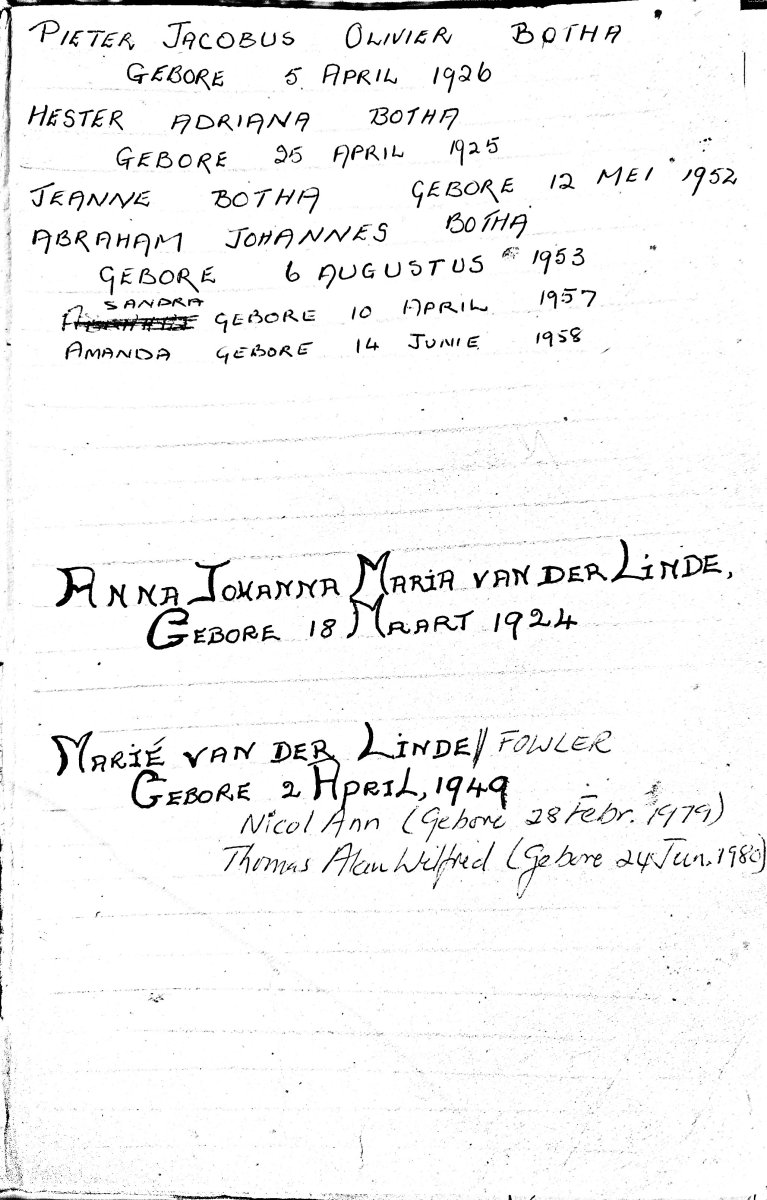 PIETER JACOBUS OLIVIER BOTHA
GEBORE 5 APRIL 1926
HESTER ADRIANA BOTHA
GEBORE 25 APRIL 1925
JEANNE BOTHA GEBORE 12 MEI 1952
ABRAHAM JOHANNES BOTHA
GEBORE 6 AUGUSTUS 1953
SANDRA GEBORE 10 APRIL 1957
AMANDA GEBORE 14 JUNIE 1958
ANNA JOHANNA MARIA VAN DER LINDE,
GEBORE 18 MAART 1924
MARIÉ VAN DER LINDE // FOWLER
GEBORE 2 APRIL, 1949
Nicol Ann (Gebore 28 Febr. 1979)
Thomas Alan Wilfred (Gebore 24 Jun. 1980)